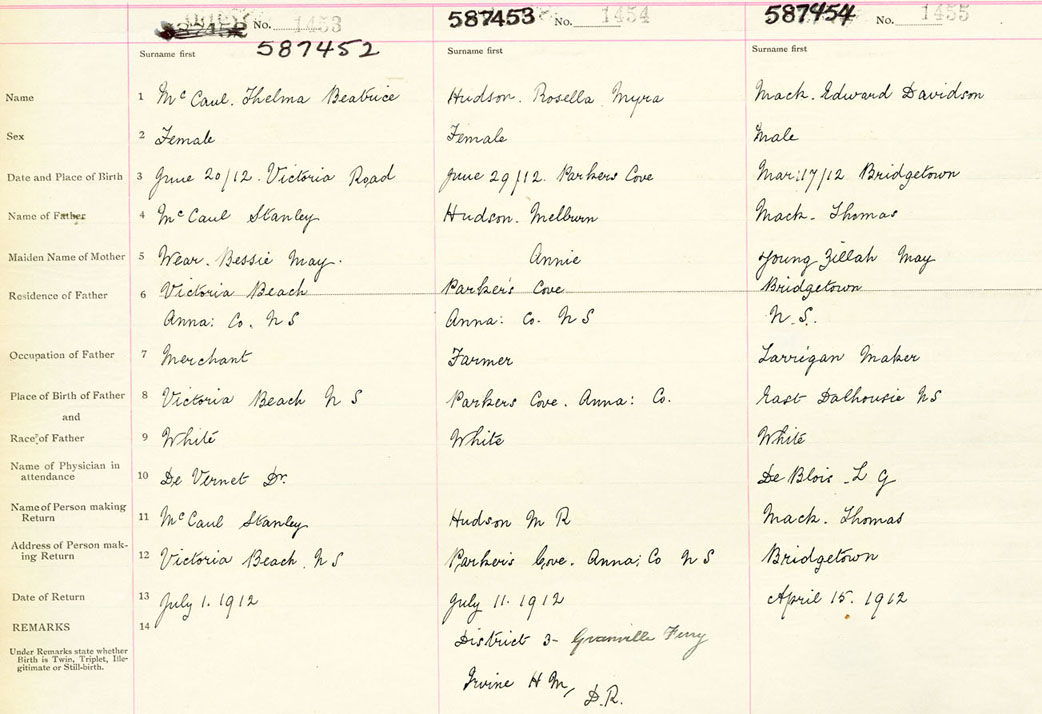 No. 1453 587453 No. 1454 587454 No. 1455
587452
Surname first Surname first Surname first
Name 1 McCaul. Thelma Beatrice Hudson. Rosella Myra Mack. Edward Davidson
Sex 2 Female Female Male
Date and Place of Birth 3 June 20/12. Victoria Road June 29/12. Parkers Cove Mar: 17/12 Bridgetown
Name of Father 4 McCaul Stanley Hudson. Melburn Mack. Thomas
Maiden Name of Mother 5 Wear. Bessie May. Annie Young Zillah May
Residence of Father 6 Victoria Beach Parker's Cove Bridgetown
Anna: Co. N S Anna: Co. N S N. S.
Occupation of Father 7 Merchant Farmer Larrigan Maker
Place of Birth of Father 8 Victoria Beach N S Parkers Cove. Anna: Co. East Dalhousie NS
and
Race of Father 9 White White White
Name of Physician in
attendance 10 De Vernet Dr. De Blois L G
Name of Person making
Return 11 McCaul Stanley Hudson M R Mack. Thomas
Address of Person mak-
ing Return 12 Victoria Beach. N S Parker's Cove. Anna: Co N S Bridgetown
Date of Return 13 July 1. 1912 July 11. 1912 April 15. 1912
REMARKS 14
District 3- Granville Ferry
Under Remarks state whether
Birth is Twin, Triplet, Ille-
gitimate or Still-birth.
Irvine H M, D.R.